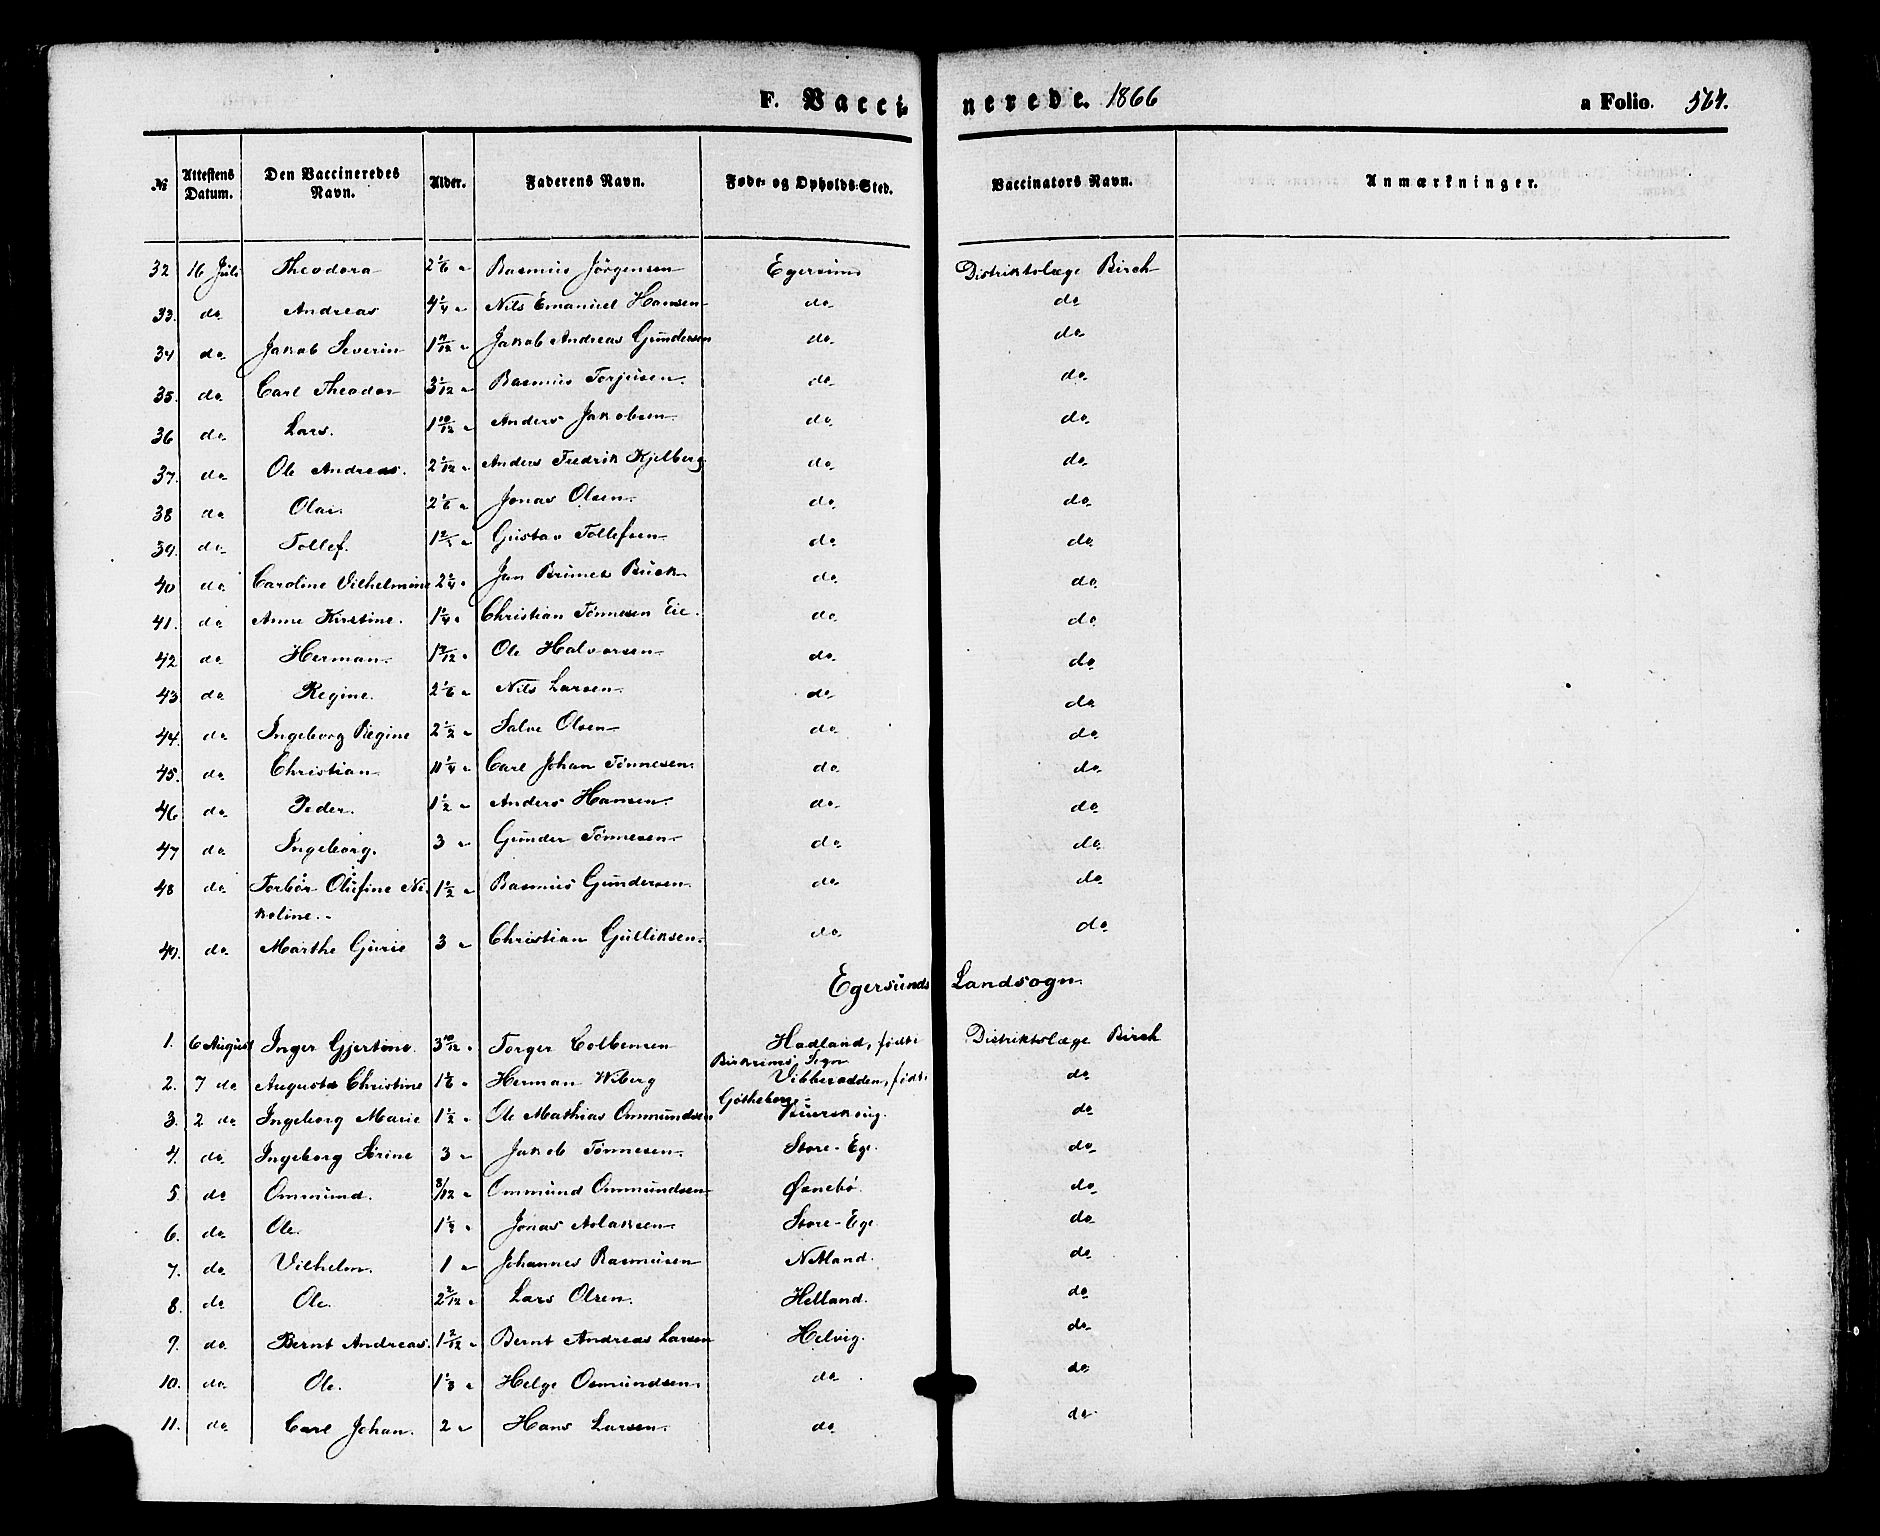 F. Vaccinerede. 1866 a Folio. 564.
№ Attestens Datum. Den Vaccineredes Navn. Alder. Faderens Navn. Føde- og Opholds-Sted. Vaccinators Navn. Anmærkninger.
32 16 Juli Theodora 2 1/6 " Rasmus Jörgensen Egersund Distriktslæge Birch
33. do Andreas 4 1/4 " Nils Emanuel Hansen do do
34 do Jakob Severin 1 11/12 " Jakob Andreas Gundersen do do
35. do Carl Theodor 3 1/12 " Rasmus Torjusen. do do
36 do Lars. 1 10/12 " Anders Jakobsen do do
37. do Ole Andreas. 2 1/12 " Anders Fredrik Kjelberg do do
38 do Olai. 2 1/6 " Jonas Olsen. do do
39. do Tollef. Gustav Tollefsen do do
40 do Caroline Vilhelmine 2 1/4 " Jan Brunes Buck do do
41. do Anne Kirstine. 1 1/4 " Christian Tønnesen Eie. do do
42 do Herman. Ole Halvorsen do do
43 do Regine. 2 1/6 " Nils Larsen. do do
44. do Ingeborg Regine 2 1/2 " Salve Olsen do do
45. do Christian. 11 1/4 " Carl Johan Tønnesen. do do
46 do Peder. 1 1/2 " Anders Hansen. do do
47 do Ingeborg. 3 " Gunder Tønnesen. do do
48 do Torbör Olufine Ni- 1 1/2 " Rasmus Gundersen. do do
koline.
49. do Marthe Gurie 3 " Christian Gulliksen. do do
Egersunds Landsogn.
1. 6 August Inger Gjertine. 3 10/12 " Torger Colbensen Hadland, födt i Distriktslæge Birch
Birkrims Sogn
2. 7 do Augusta Christine 1 1/6 " Herman Wiberg Vibberodden, födt i do
Götheborg.
3. 2 do Ingeborg Marie 1 1/2 " Ole Mathias Ommundsen do
4. do Ingeborg Serine 3 " Jakob Tønnesen. Store-Ege. do
5. do Ommund. 3/12 " Ommund Ommundsen Øsnebö. do
6. do Ole. Jonas Aslaksen. Store-Ege. do
7. do Vilhelm. 1 " Johannes Rasmusen Netland. do
8. do Ole. 2 2/12 " Lars Olsen. Helland. do
9. do Bernt Andreas. 1 2/12 " Bernt Andreas Larsen Helvig. do
10. do Ole. 1 1/3 " Helge Osmundsen. do do
11. do Carl Johan. 2 " Hans Larsen. do do